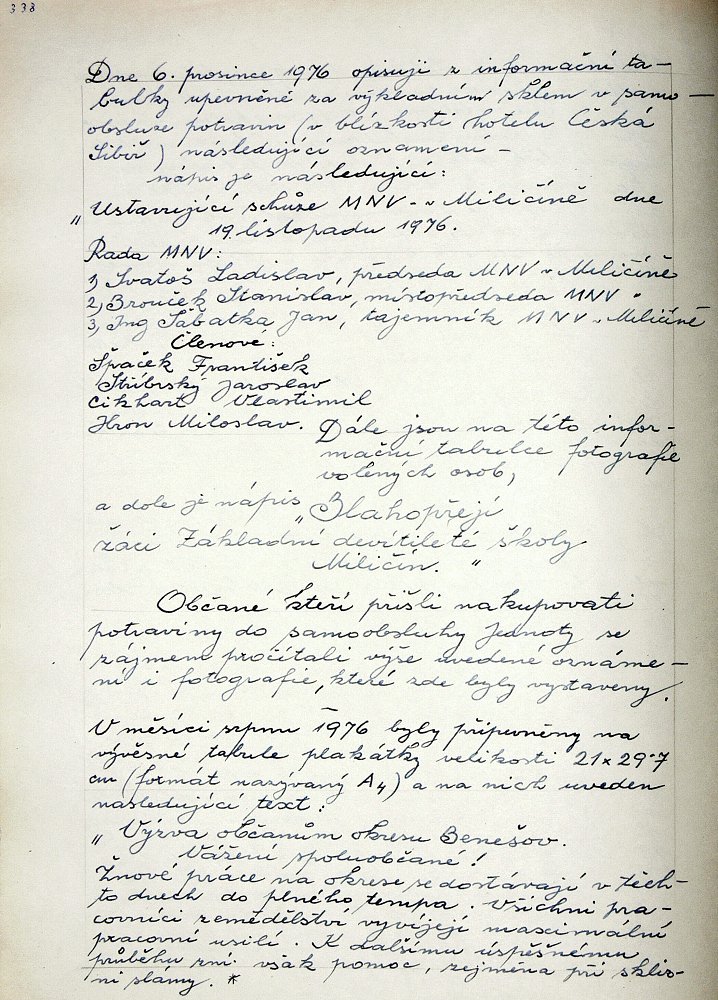 338
Dne 6. prosince 1976 opisuji z informační ta-
bulky upevněné za výkladním sklem v samo-
obsluze potravin (v blízkosti hotelu Česká
Sibiř) následující oznamení -
nápis je následující:
„Ustavující schůze MNV - v Miličíně dne
19. listopadu 1976.
Rada MNV:
1, Svatoš Ladislav, předseda MNV v Miličíně
2, Brouček Stanislav, místopředseda MNV "
3, Ing Sábatka Jan, tajemník MNV v Miličíně
Členové:
Špaček František
Stříbrský Jaroslav
Cikhart Vlastimil
Hron Miloslav. Dále jsou na této infor-
mační tabulce fotografie
volených osob,
a dole je nápis „Blahopřejí
žáci Základní devítileté školy
Miličín. "
Občané kteří přišli nakupovati
potraviny do samoobsluhy Jednoty se
zájmem pročítali výše uvedené oznáme-
ní i fotografie, které zde byly vystaveny.
V měsíci srpnu 1976 byly připevněny na
vývěsné tabule plakátky velikosti 21 x 29·7
cm (formát nazývaný A4) a na nich uveden
následující text:
„ Výzva občanům okresu Benešov.
Vážení spoluobčané!
Žňové práce na okrese se dostávají v těch-
to dnech do plného tempa. Všichni pra-
covníci zemědělství vyvíjejí maximální
pracovní usilí. K dalšímu úspěšnému
průběhu žní však pomoc, zejména při skliz-
ni slámy. *